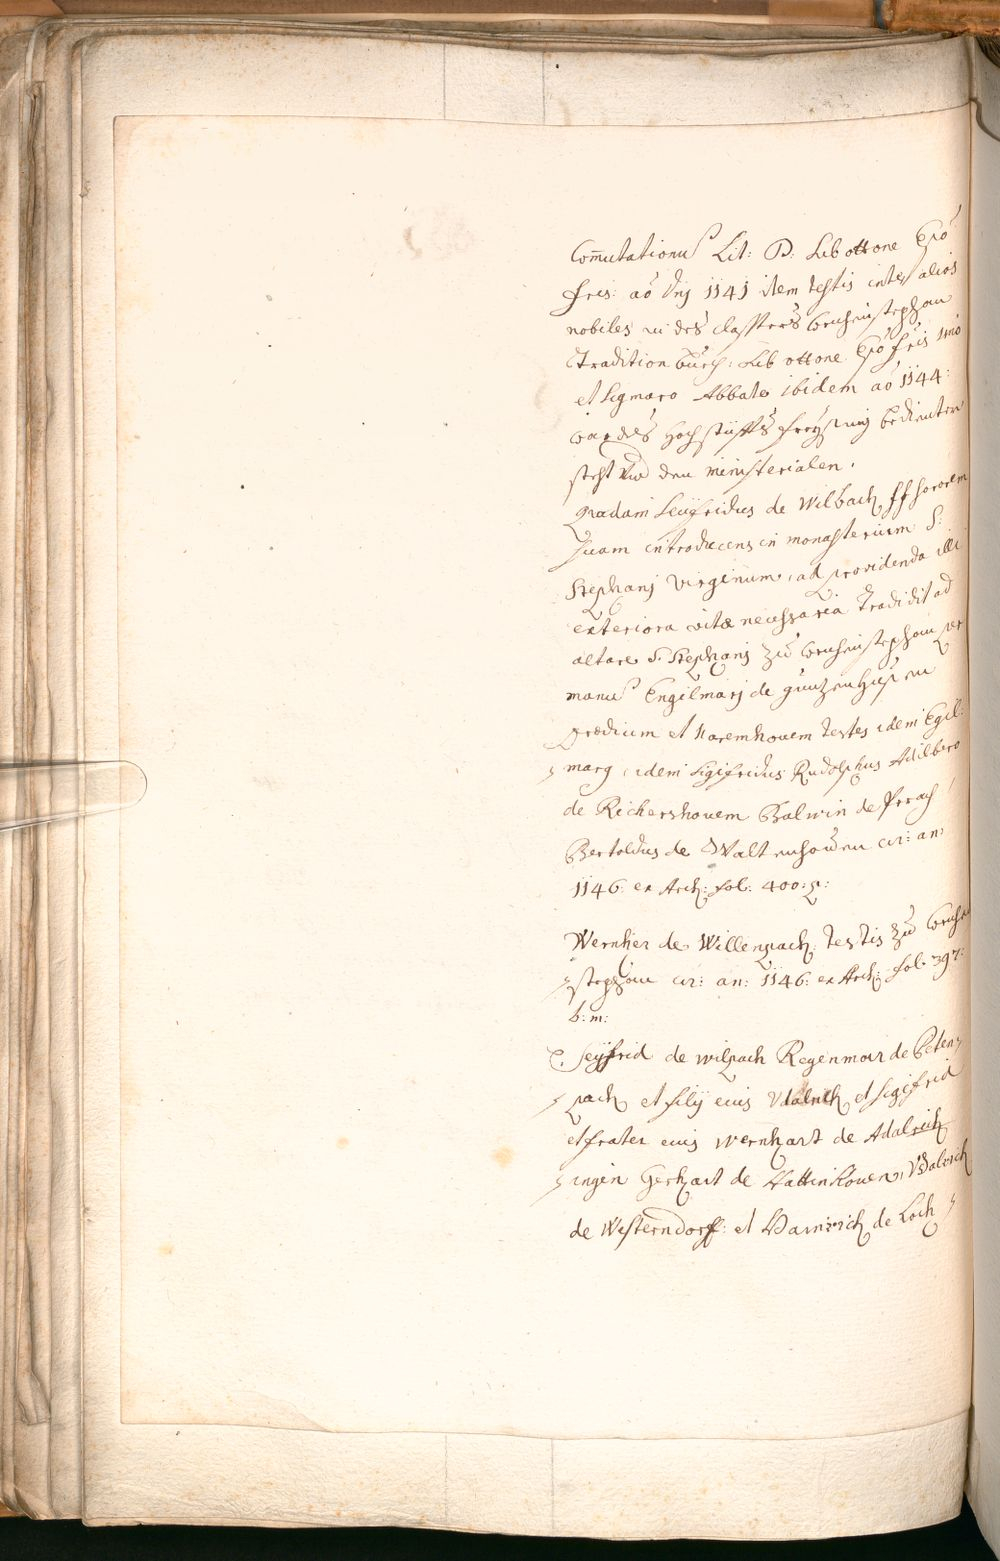 Com̅utationu͂ Lit: D: sub ottone Epo͂
fris: ao͂ Dnj 1141 item testis inter alios
nobiles in des closters Weihenstephan
Tradition buech: sub ottone Epo͂ fris imo
et Sigmaro Abbate ibidem ao͂ 1144:
war des hochstiffts freysing bedienter
steht vnd den ministerialen.
Quadam Seyfridus de Wilbach ff sororem
suam introducens in monasterium S:
Stephanj virginum, ad providenda illi
exteriora vitæ necessaria tradidit ad
altare S. Stephanj zu Weihenstephan per
manu͂ Engilmarj de gunzenhusen
prædium et Haremhouem testes idem Egil:
marg idem Sigifridus Rudolphus Adilbero
de Richershouem Balwin de Prrach
Bertoldus de Waltenhowen cir: an:
1146. ex Arch: fol: 400: p:
Wernher de Willenpach testis zu Weihen
stephan cir: an: 1146: ex Arch: fol: 397:
b: m:
C. Seyfrid de wilpach Regenmar de Peten
pach et filij eius Vdalrich et Sigifrid
et frater eius wernhart de Adalrich
ingen Gerhart de Hattinhouen, Vdalrich
de Westerndorff: et Hainrich de Loch